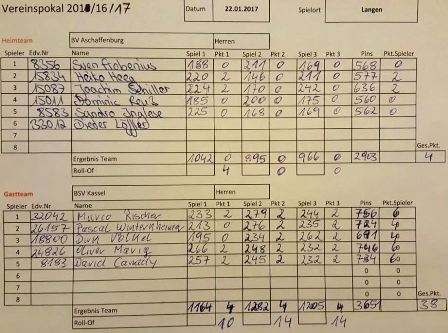 Vereinspokal 2016/16/17 Datum 22.01.2017 Spielort Langen
Heimteam BV Aschaffenburg Herren
Spieler Edv.Nr Name Spiel 1 Pkt 1 Spiel 2 Pkt 2 Spiel 3 Pkt 3 Pins Pkt.Spieler
1 8356 Sven Frobenius 188 0 211 0 169 0 568 0
2 15834 Heiko Heeg 220 2 146 0 211 0 577 2
3 15087 Joachim Schiller 224 2 170 0 242 0 636 2
4 15011 Dominic 185 0 200 0 175 0 560 0
5 8583 Sandro Inglese 225 0 168 0 169 0 562 0
6 33012 Dieter Löffler
7
8 Ges.Pkt.
Ergebnis Team 1042 0 895 0 966 0 2903 4
Roll-Of 4 0 0
Gastteam BSV Kassel Herren
Spieler Edv.Nr Name Spiel 1 Pkt 1 Spiel 2 Pkt 2 Spiel 3 Pkt 3 Pins Pkt.Spieler
1 32042 Marco 233 2 279 2 244 2 756 6
2 26157 Pascal Winternheimer 213 0 276 2 235 2 724 4
3 18800 Dirk Völkel 195 0 234 2 262 2 691 4
4 24826 Oliver 266 2 248 2 232 2 746 6
5 8193 David Canady 257 2 245 2 232 2 734 6
6 0 0
7 0 0
8 0 0 Ges.Pkt.
Ergebnis Team 1164 4 1282 4 1205 4 3651 38
Roll-Of 10 14 14